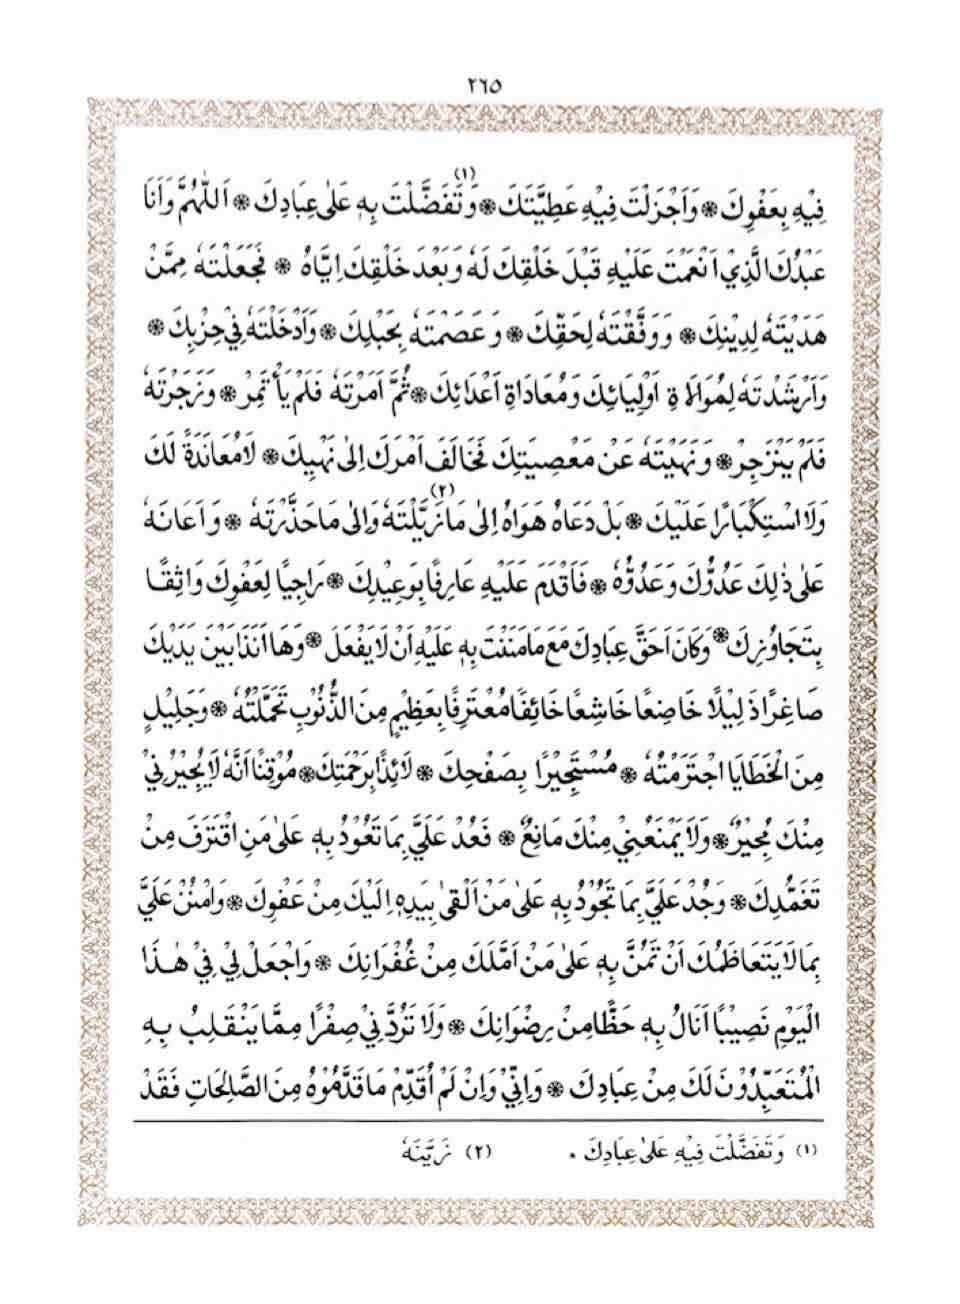 ٢٦٥
فِيْهِ بِعَفْوِكَ ❋ وَاَجْزَلْتَ فِيْهِ عَطِيَّتَكَ ❋ (١) وَتَفَضَّلْتَ بِهٖ عَلٰى عِبَادِكَ ❋ اَللّٰهُمَّ وَاَنَا
عَبْدُكَ الَّذِيْ اَنْعَمْتَ عَلَيْهِ قَبْلَ خَلْقِكَ لَهٗ وَبَعْدَ خَلْقِكَ اِيَّاهُ ❋ فَجَعَلْتَهٗ مِمَّنْ
هَدَيْتَهٗ لِدِيْنِكَ ❋ وَوَفَّقْتَهٗ لِحَقِّكَ ❋ وَعَصَمْتَهٗ بِحَبْلِكَ ❋ وَاَدْخَلْتَهٗ فِيْ حِزْبِكَ ❋
وَاَرْشَدْتَهٗ لِمُوَالَاةِ اَوْلِيَائِكَ وَمُعَادَاةِ اَعْدَائِكَ ❋ ثُمَّ اَمَرْتَهٗ فَلَمْ يَأْتَمِرْ ❋ وَزَجَرْتَهٗ
فَلَمْ يَنْزَجِرْ ❋ وَنَهَيْتَهٗ عَنْ مَعْصِيَتِكَ فَخَالَفَ اَمْرَكَ اِلٰى نَهْيِكَ ❋ لَا مُعَانَدَةً لَكَ
وَلَا اسْتِكْبَارًا عَلَيْكَ ❋ بَلْ دَعَاهُ هَوَاهُ اِلٰى مَا زَيَّلْتَهٗ (٢) وَاِلٰى مَا حَذَّرْتَهٗ ❋ وَاَعَانَهٗ
عَلٰى ذٰلِكَ عَدُوُّكَ وَعَدُوُّهٗ ❋ فَاَقْدَمَ عَلَيْهِ عَارِفًا بِوَعِيْدِكَ ❋ رَاجِيًا لِعَفْوِكَ وَاثِقًا
بِتَجَاوُزِكَ ❋ وَكَانَ اَحَقَّ عِبَادِكَ مَعَ مَا مَنَنْتَ بِهٖ عَلَيْهِ اَنْ لَا يَفْعَلَ ❋ وَهَا اَنَذَا بَيْنَ يَدَيْكَ
صَاغِرًا ذَلِيْلًا خَاضِعًا خَاشِعًا خَائِفًا مُعْتَرِفًا بِعَظِيْمٍ مِنَ الذُّنُوْبِ تَحَمَّلْتُهٗ ❋ وَجَلِيْلٍ
مِنَ الْخَطَايَا اجْتَرَمْتُهٗ ❋ مُسْتَجِيْرًا بِصَفْحِكَ ❋ لَائِذًا بِرَحْمَتِكَ ❋ مُوْقِنًا اَنَّهٗ لَا يُجِيْرُنِيْ
مِنْكَ مُجِيْرٌ ❋ وَلَا يَمْنَعُنِيْ مِنْكَ مَانِعٌ ❋ فَعُدْ عَلَيَّ بِمَا تَعُوْدُ بِهٖ عَلٰى مَنِ اقْتَرَفَ مِنْ
تَغَمُّدِكَ ❋ وَجُدْ عَلَيَّ بِمَا تَجُوْدُ بِهٖ عَلٰى مَنْ اَلْقٰى بِيَدِهٖ اِلَيْكَ مِنْ عَفْوِكَ ❋ وَامْنُنْ عَلَيَّ
بِمَا لَا يَتَعَاظَمُكَ اَنْ تَمُنَّ بِهٖ عَلٰى مَنْ اَمَّلَكَ مِنْ غُفْرَانِكَ ❋ وَاجْعَلْ لِيْ فِيْ هٰذَا
الْيَوْمِ نَصِيْبًا اَنَالُ بِهٖ حَظًّا مِنْ رِضْوَانِكَ ❋ وَلَا تَرُدَّنِيْ صِفْرًا مِمَّا يَنْقَلِبُ بِهِ
الْمُتَعَبِّدُوْنَ لَكَ مِنْ عِبَادِكَ ❋ وَاِنِّيْ وَاِنْ لَمْ اُقَدِّمْ مَا قَدَّمُوْهُ مِنَ الصَّالِحَاتِ فَقَدْ
(١) وَتَفَضَّلْتَ فِيْهِ عَلٰى عِبَادِكَ ٭ (٢) زَيَّنَهٗ